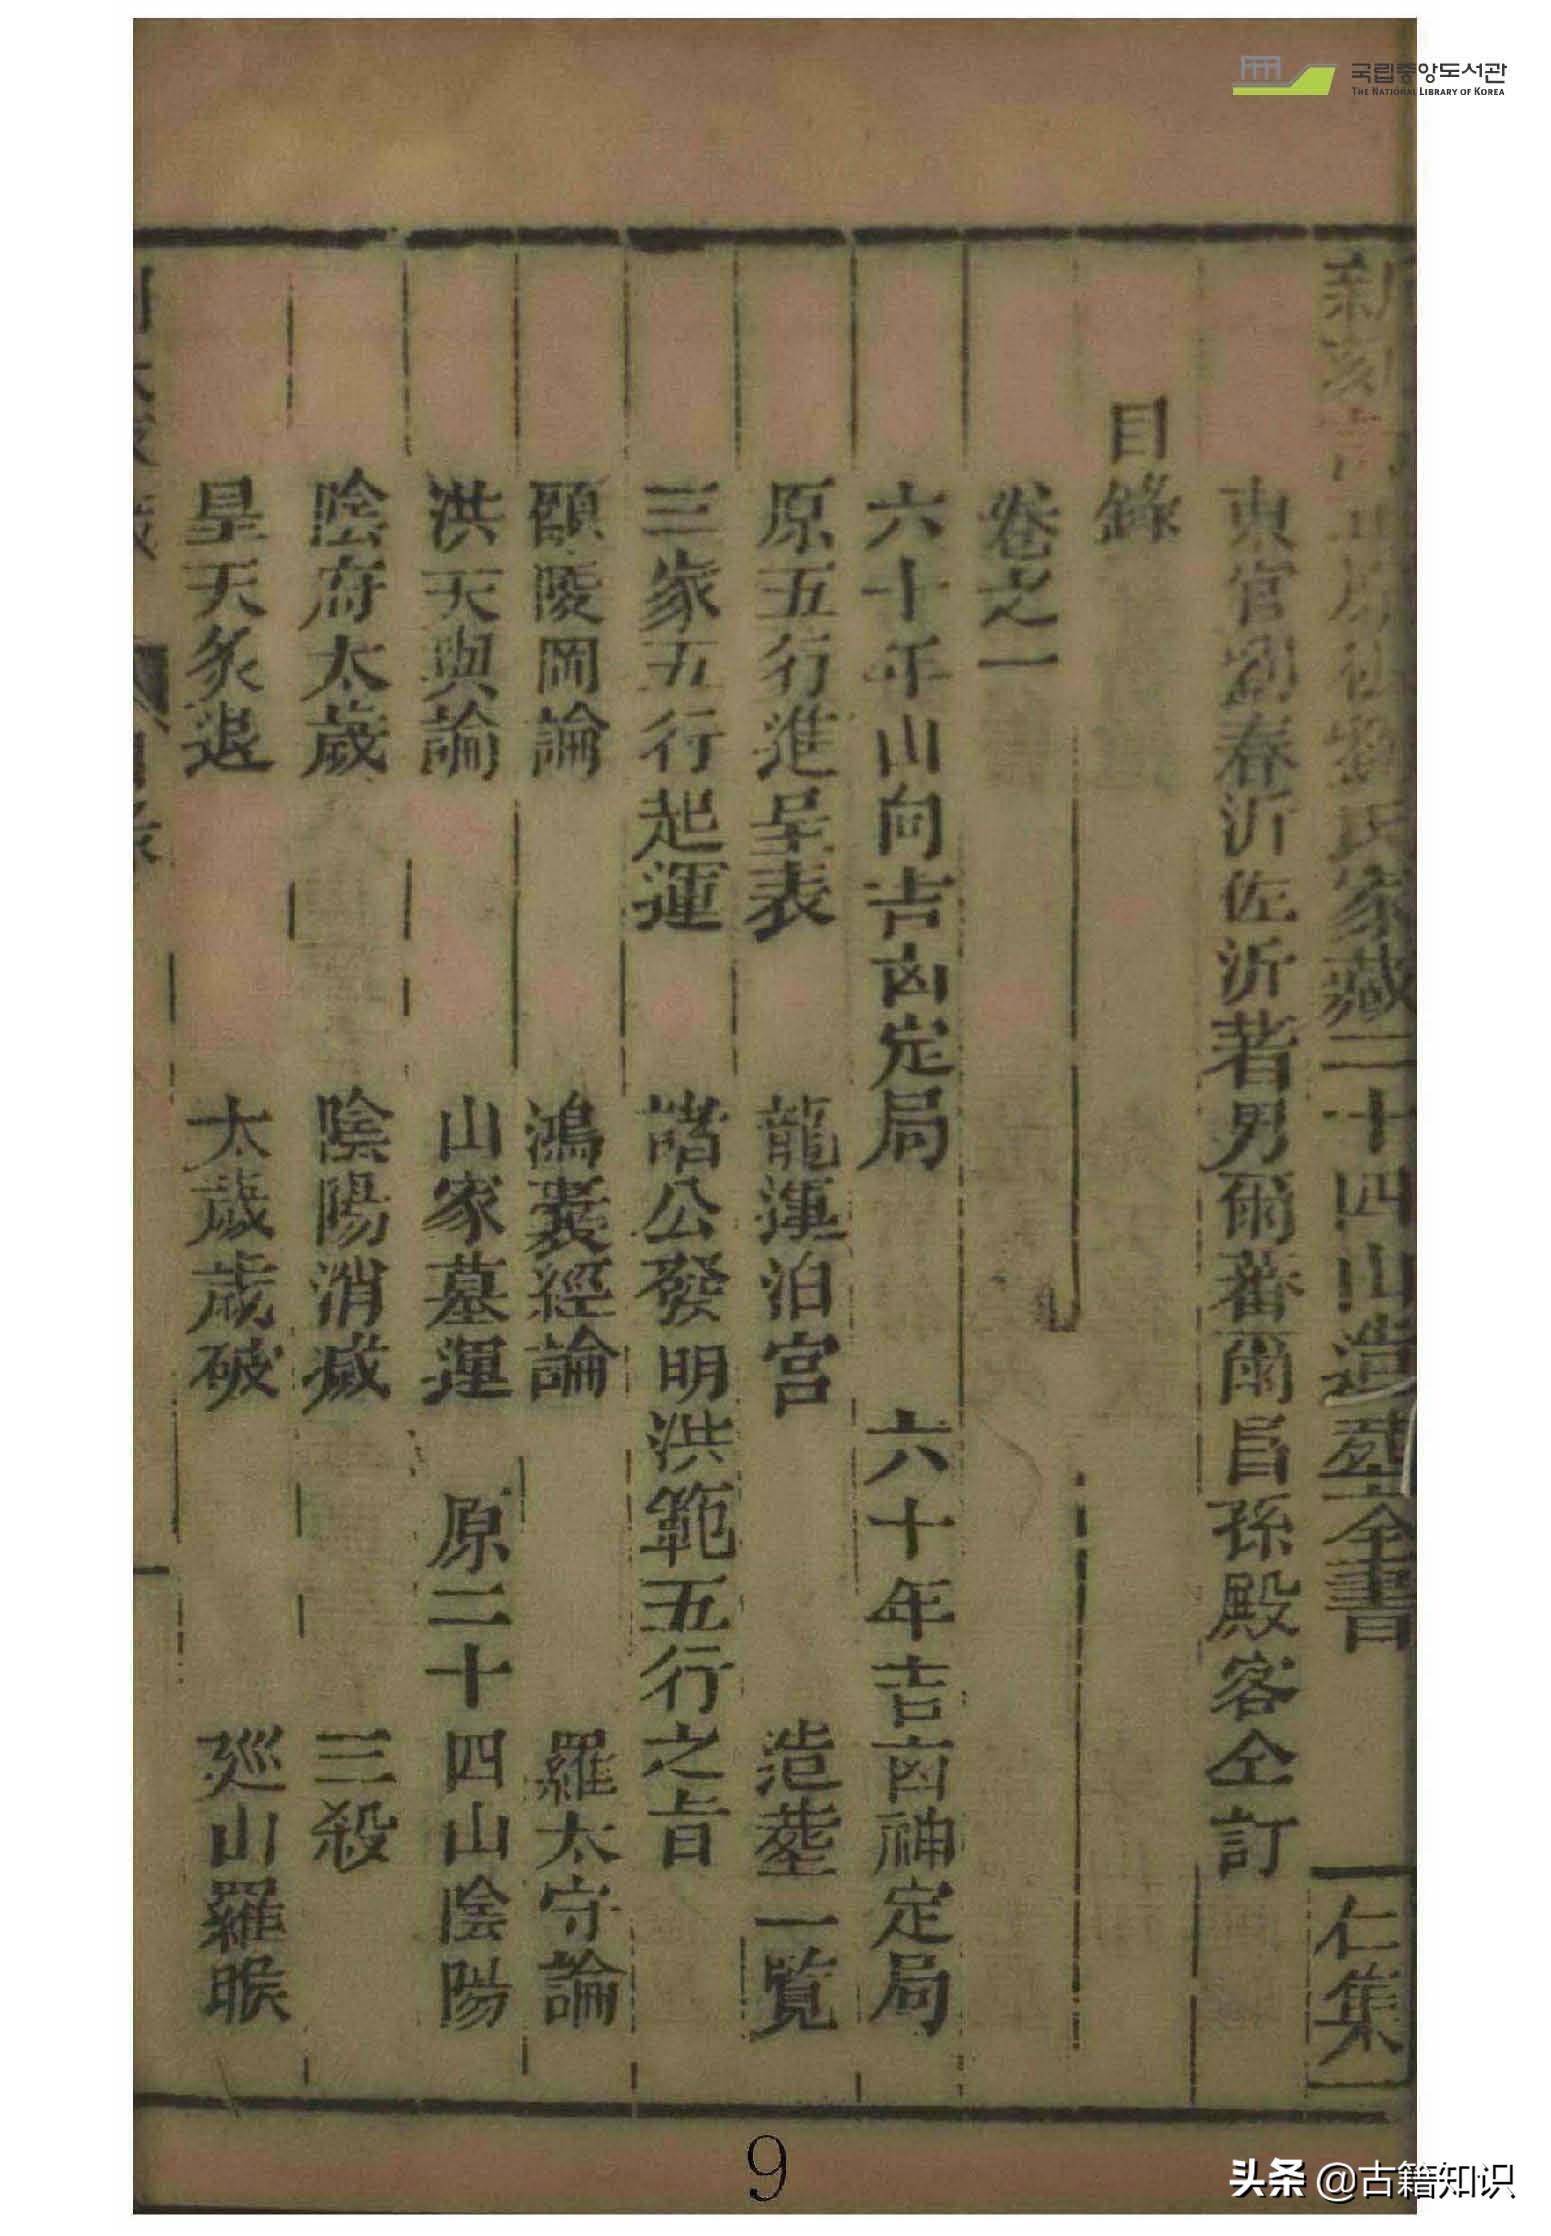 국립중앙도서관
THE NATIONAL LIBRARY OF KOREA
新刻劉氏家藏二十四山造塟全書 仁集
東官劉春沂佐沂著男爾蕃爾昌孫殿客仝訂
目錄
卷之一
六十年山向吉凶定局 六十年吉凶神定局
原五行進呈表 龍運泊宮 造塟一覧
三家五行起運 諸公發明洪範五行之旨
顧陵岡論 鴻囊經論 羅太守論
洪天與論 山家墓運 原二十四山陰陽
陰府太歲 陰陽消藏 三殺
星天炙退 太歲歲破 廵山羅睺
一
9
头条 @古籍知识